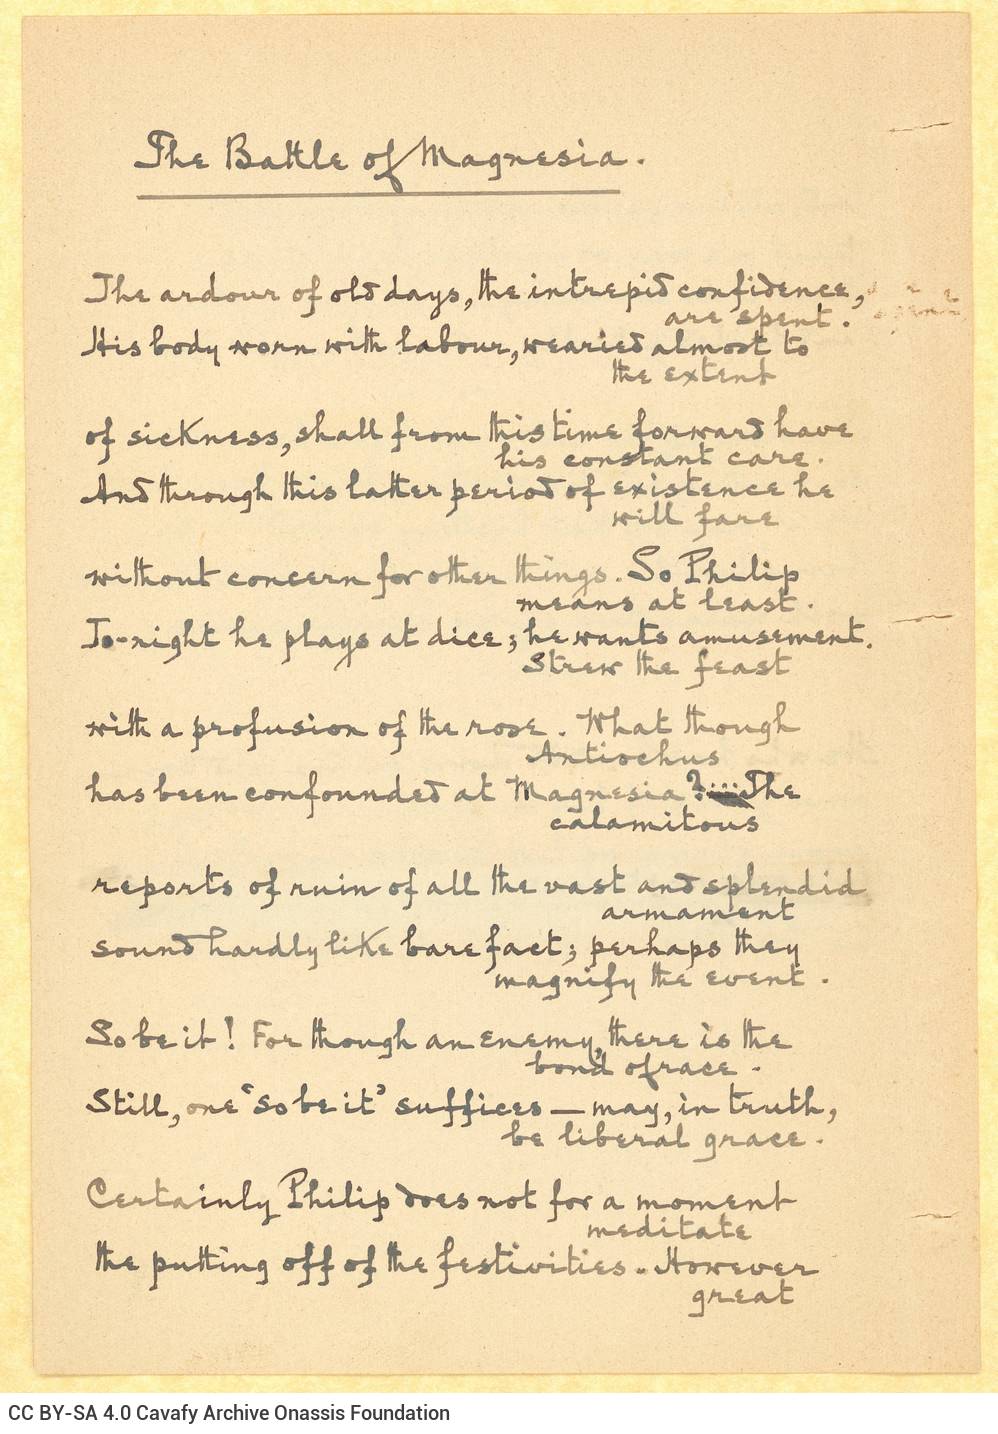 The Battle of Magnesia.
The ardour of old days, the intrepid confidence,
are spent.
His body worn with labour, wearied almost to
the extent
of sickness, shall from this time forward have
his constant care.
And through this latter period of existence he
will fare
without concern for other things. So Philip
means at least.
To-night he plays at dice; he wants amusement.
Strew the feast
with a profusion of the rose. What though
Antiochus
has been confounded at Magnesia? The
calamitous
reports of ruin of all the vast and splendid
armament
sound hardly like bare fact; perhaps they
magnify the event.
So be it! For though an enemy, there is the
bond of race.
Still, one 'so be it' suffices — may, in truth,
be liberal grace.
Certainly Philip does not for a moment
meditate
the putting off of the festivities. However
great
CC BY-SA 4.0 Cavafy Archive Onassis Foundation